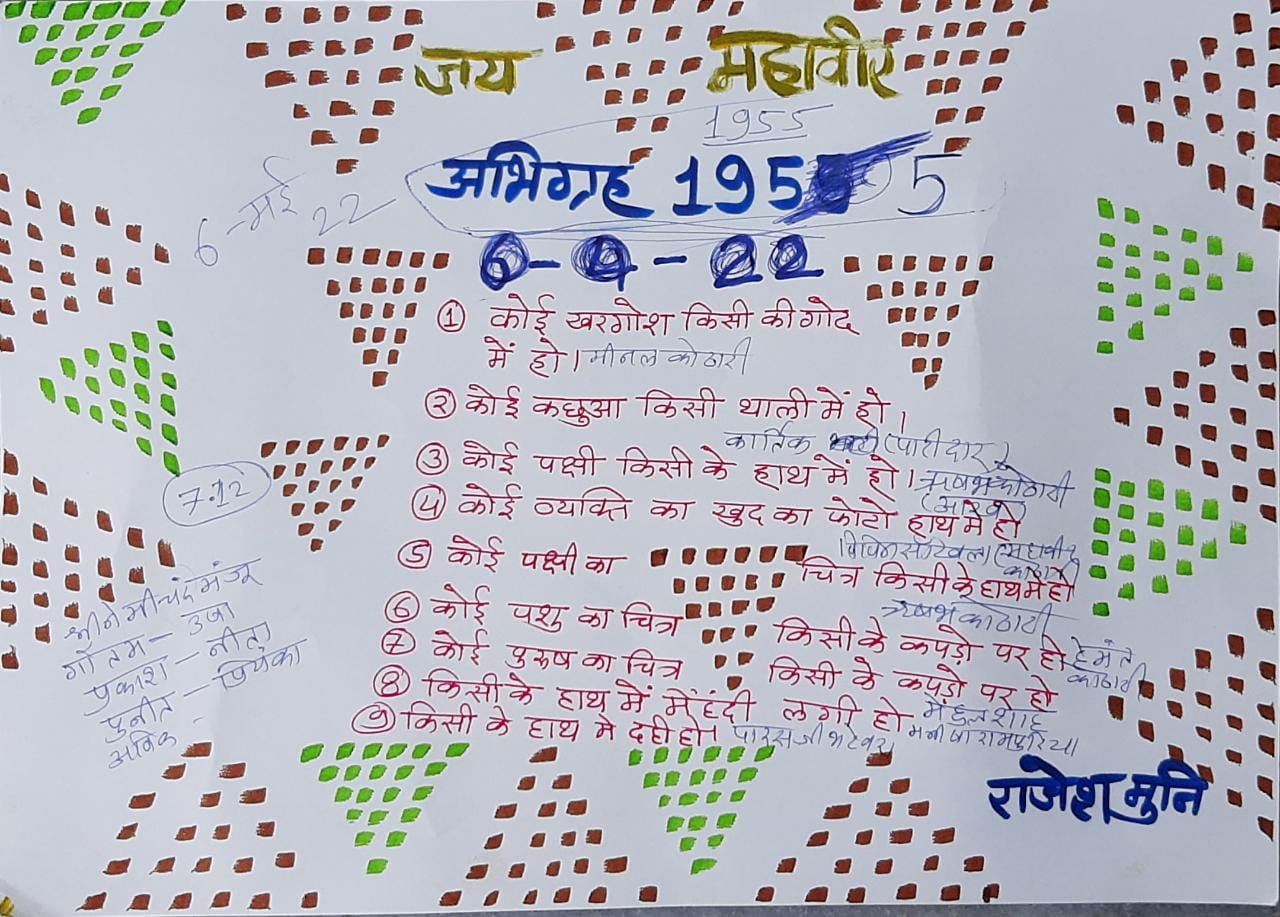 जय महावीर
1955
अभिग्रह 195 5
6-मई 22
6-4-22
① कोई खरगोश किसी की गोद
में हो। मीनल कोठारी
② कोई कछुआ किसी थाली में हो।
कार्तिक (पाटीदार)
③ कोई पक्षी किसी के हाथ में हो। ऋषभ कोठारी
④ कोई व्यक्ति का खुद का फोटो हाथ मे हो
7:12
⑤ कोई पक्षी का चित्र किसी के हाथ मे हो
ऋषभ कोठारी
⑥ कोई पशु का चित्र किसी के कपड़ो पर हो हेमंत कोठारी
⑦ कोई पुरुष का चित्र किसी के कपड़ो पर हो
⑧ किसी के हाथ में मेंहंदी लगी हो
⑨ किसी के हाथ मे दही हो। पारसजी भटेवरा मनीषा रामपुरिया
श्री नेमीचंद मंजू
गौतम - उजा
प्रकाश - नीता
पुनीत - प्रियंका
राजेश मुनि